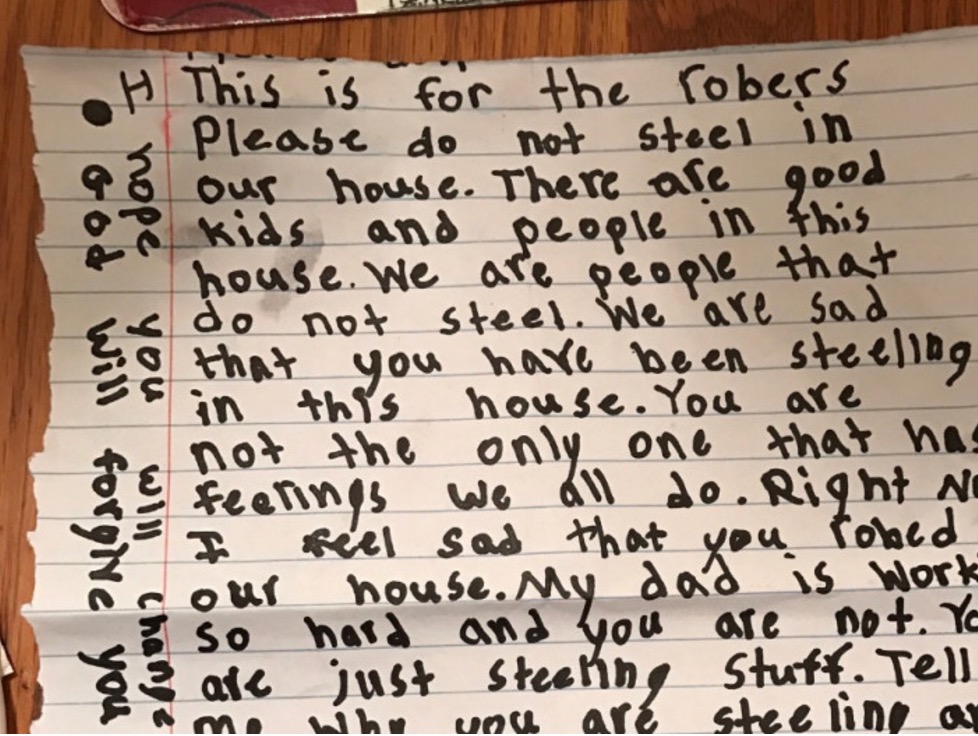 This is for the robers
Please do not steel in
our house. There are good
kids and people in this
house. We are people that
do not steel. We are sad
that you have been steeling
in this house. You are
not the only one that has
feelings we all do. Right
I feel sad that you robed
our house. My dad is work
so hard and you are not.
are just steeling stuff. Tell
me why you are steeling
I hope you will change
God will forgive you